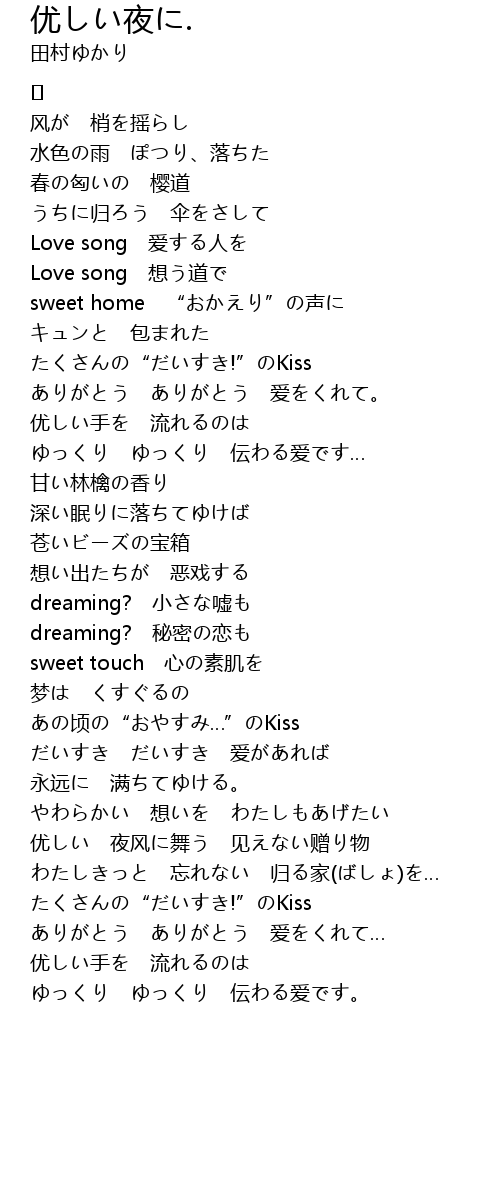 优しい夜に.
田村ゆかり
[]
风が　梢を摇らし
水色の雨　ぽつり、落ちた
春の匂いの　樱道
うちに归ろう　伞をさして
Love song　爱する人を
Love song　想う道で
sweet home　“おかえり”の声に
キュンと　包まれた
たくさんの“だいすき!”のKiss
ありがとう　ありがとう　爱をくれて。
优しい手を　流れるのは
ゆっくり　ゆっくり　伝わる爱です...
甘い林檎の香り
深い眠りに落ちてゆけば
苍いビーズの宝箱
想い出たちが　恶戏する
dreaming?　小さな嘘も
dreaming?　秘密の恋も
sweet touch　心の素肌を
梦は　くすぐるの
あの顷の“おやすみ...”のKiss
だいすき　だいすき　爱があれば
永远に　满ちてゆける。
やわらかい　想いを　わたしもあげたい
优しい　夜风に舞う　见えない赠り物
わたしきっと　忘れない　归る家(ばしょ)を...
たくさんの“だいすき!”のKiss
ありがとう　ありがとう　爱をくれて...
优しい手を　流れるのは
ゆっくり　ゆっくり　伝わる爱です。